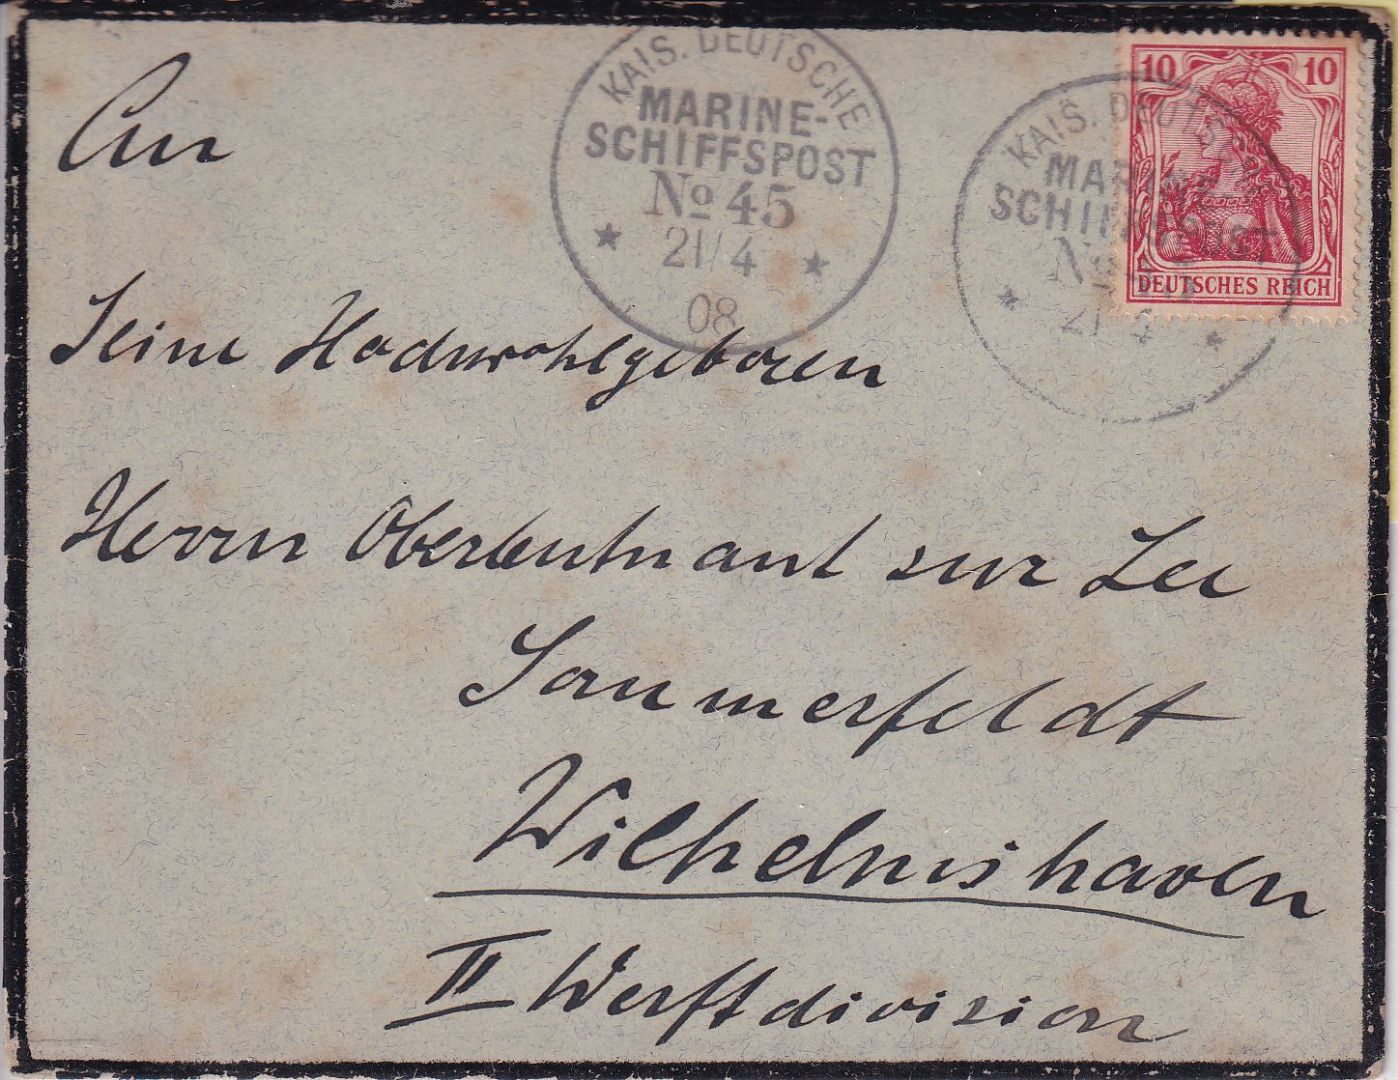 KAIS. DEUTSCHE
MARINE-
SCHIFFSPOST
No 45
21/4
08
KAIS. DEUTSCHE
MARINE
SCHIFFSPOST
No 45
21 4
10 10
DEUTSCHES REICH
An
Seine Hochwohlgeboren
Herrn Oberleutnant zur See
Sommerfeldt
Wilhelmshaven
II Werftdivision